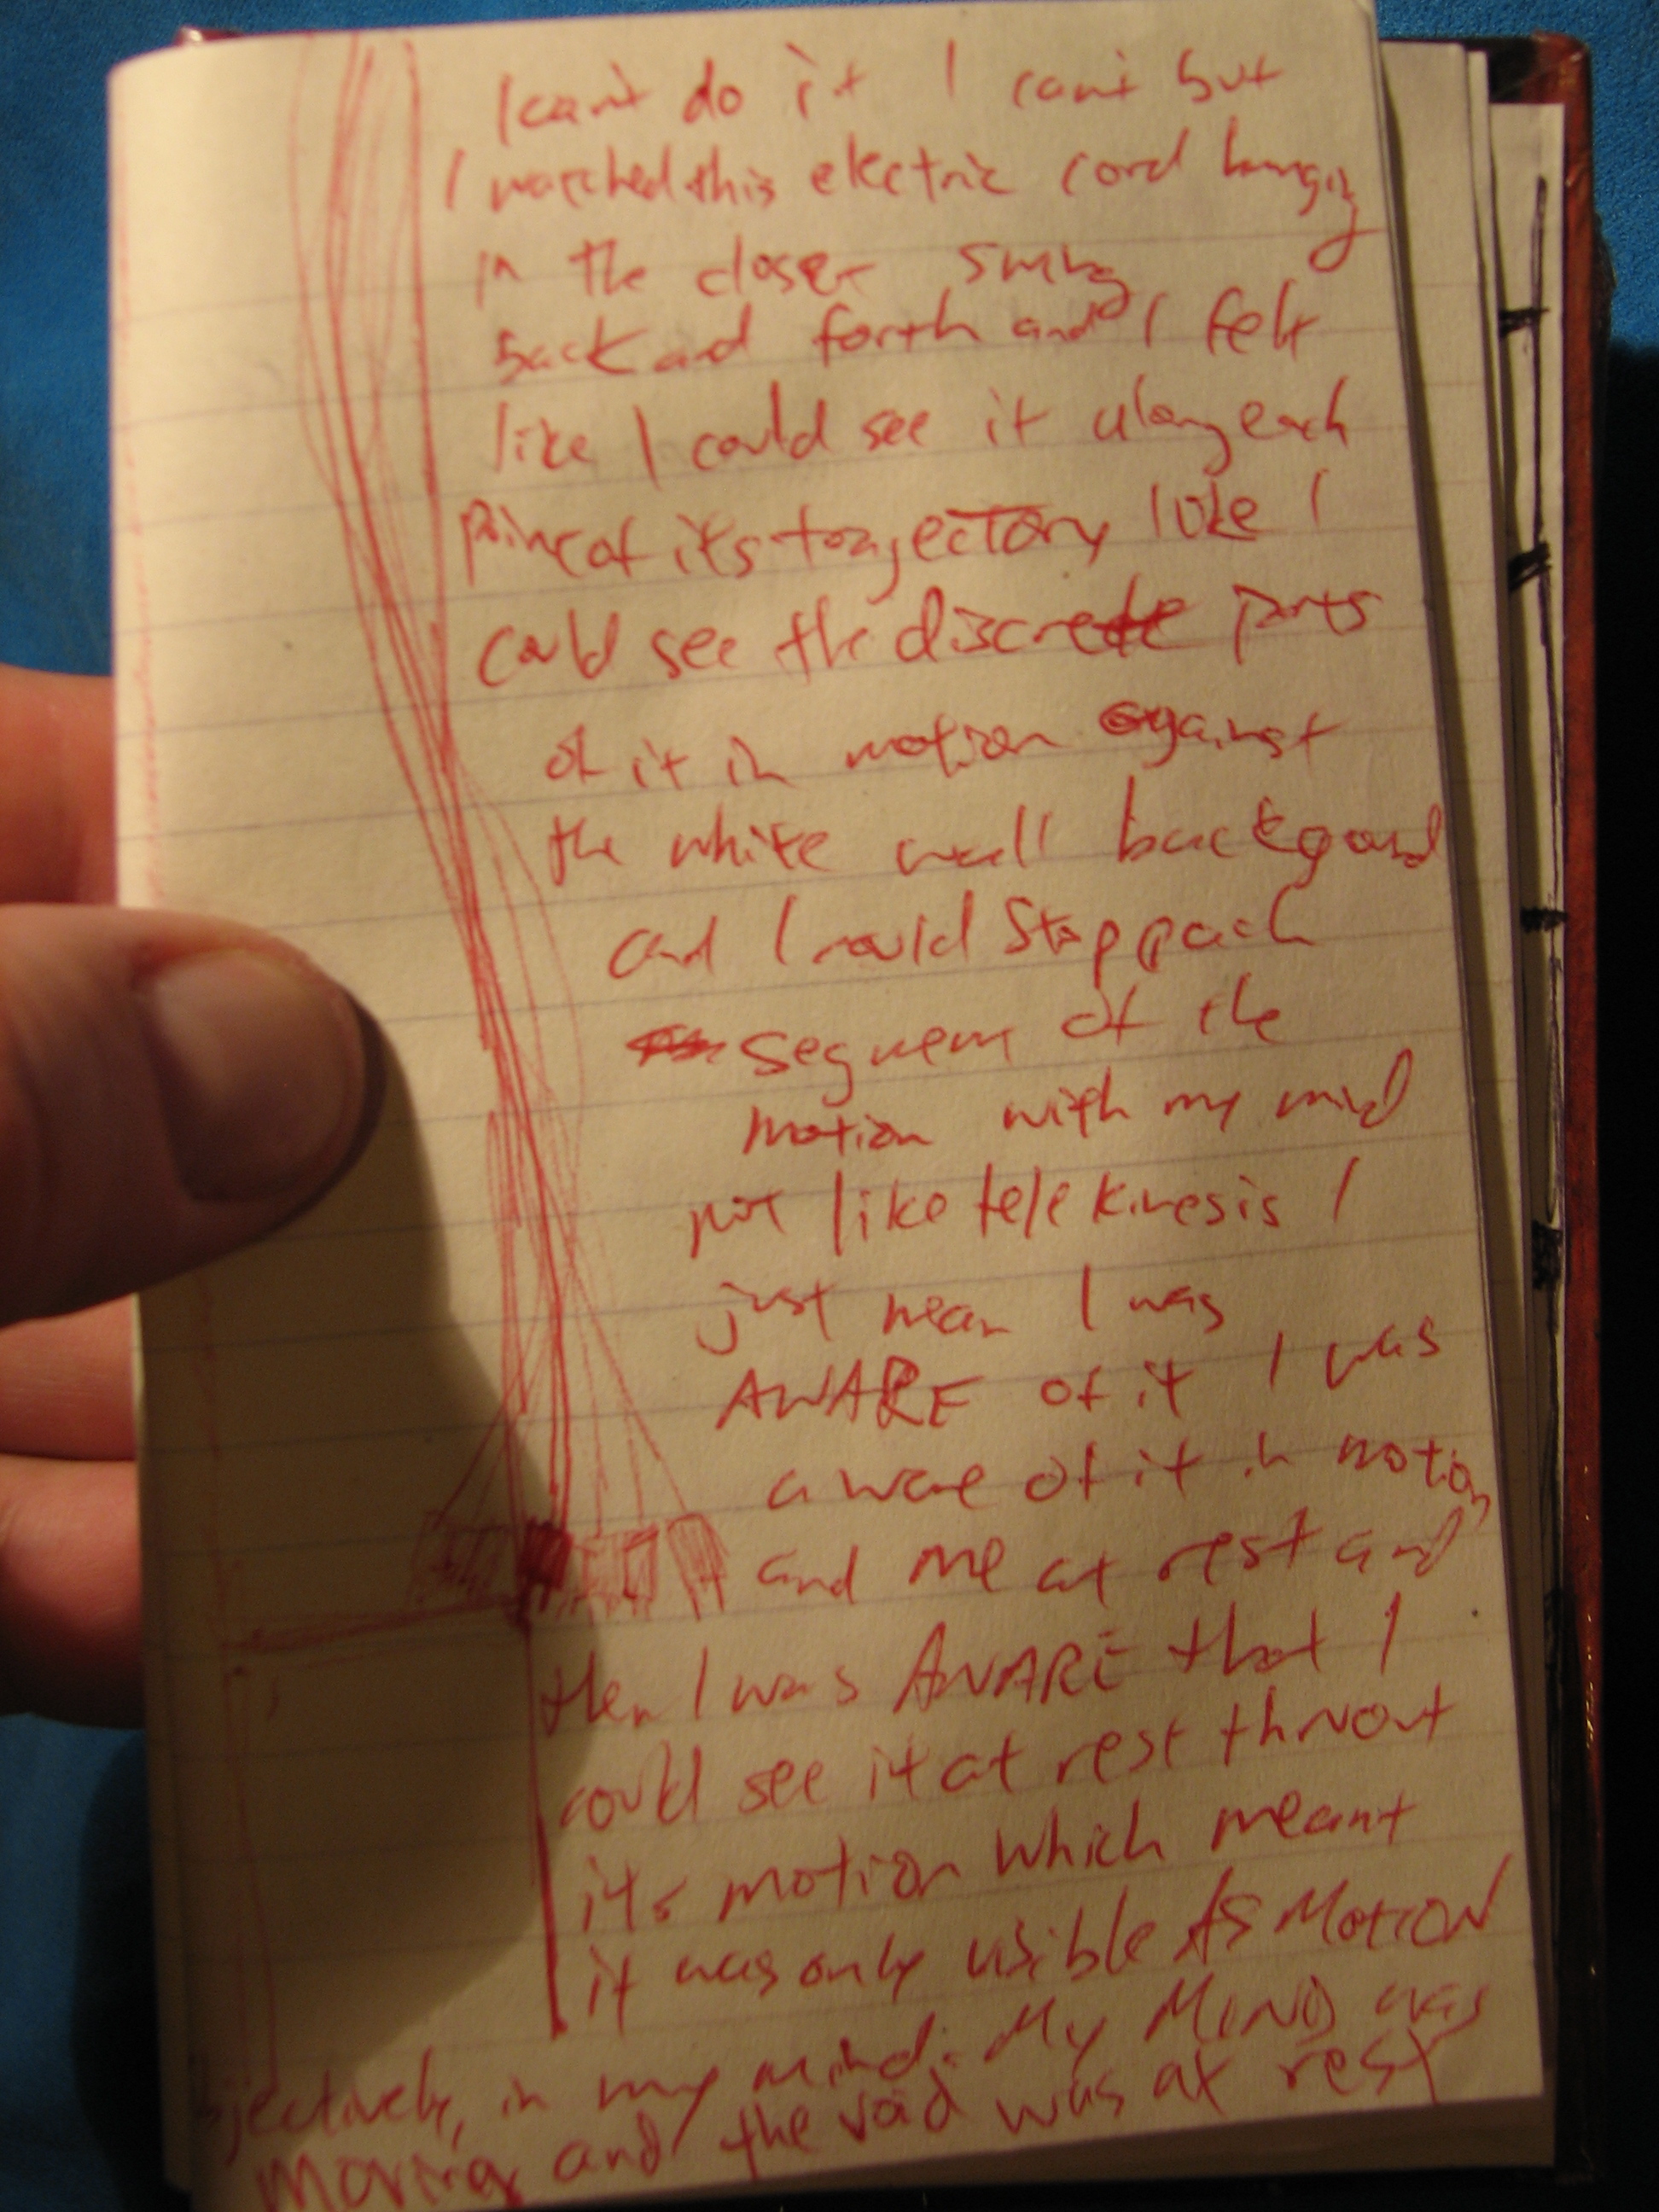 I can't do it I can't but
I watched this electric cord hanging
in the closet swing
back and forth and I felt
like I could see it along each
point of it's trajectory like I
could see the discrete parts
of it in motion against
the white wall backgound
and I could stop each
segment of the
motion with my mind
not like telekinesis I
just mean I was
AWARE of it I was
aware of it in motion
and me at rest and
then I was AWARE that I
could see it at rest thruout
its motion which meant
it was only visible AS MOTION
in my mind. My MIND was
moving and the void was at rest